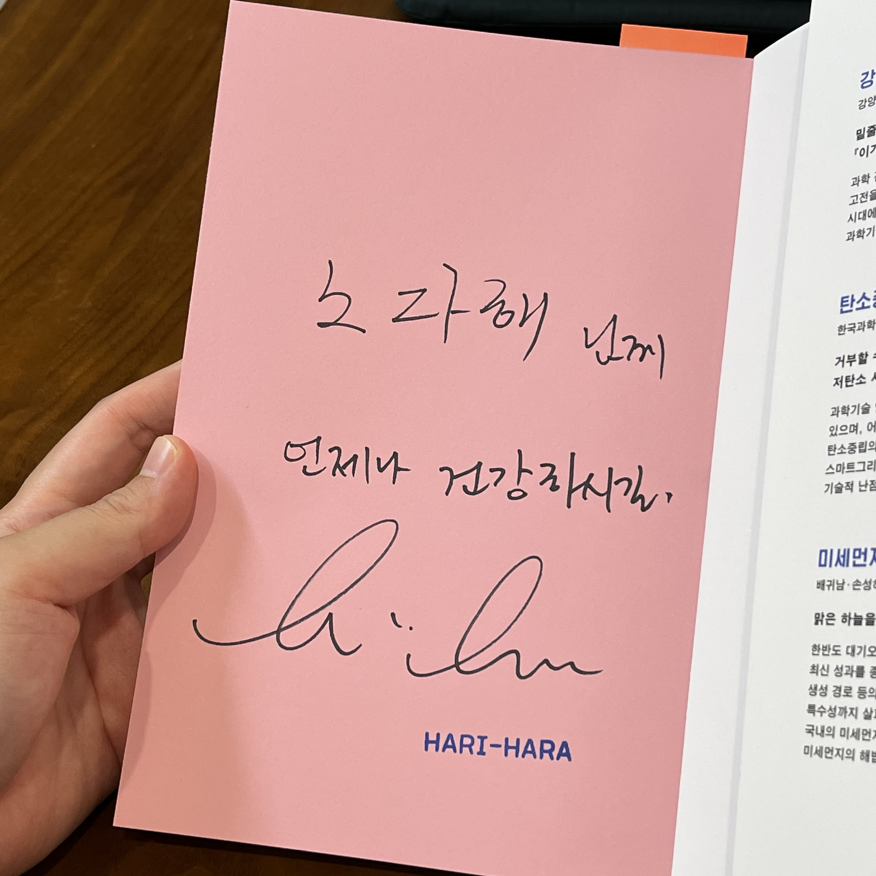 노다해 님께
언제나 건강하시길.
HARI-HARA
강
강양
밑줄
『이기
과학
고전을
시대에
과학기
탄소중
한국과학
거부할 수
저탄소 사
과학기술
있으며, 어
탄소중립의
스마트그리
기술적 난점
미세먼지
배귀남·손성하
맑은 하늘을
한반도 대기오
최신 성과를 종
생성 경로 등의
특수성까지 살
국내의 미세먼지
미세먼지의 해법